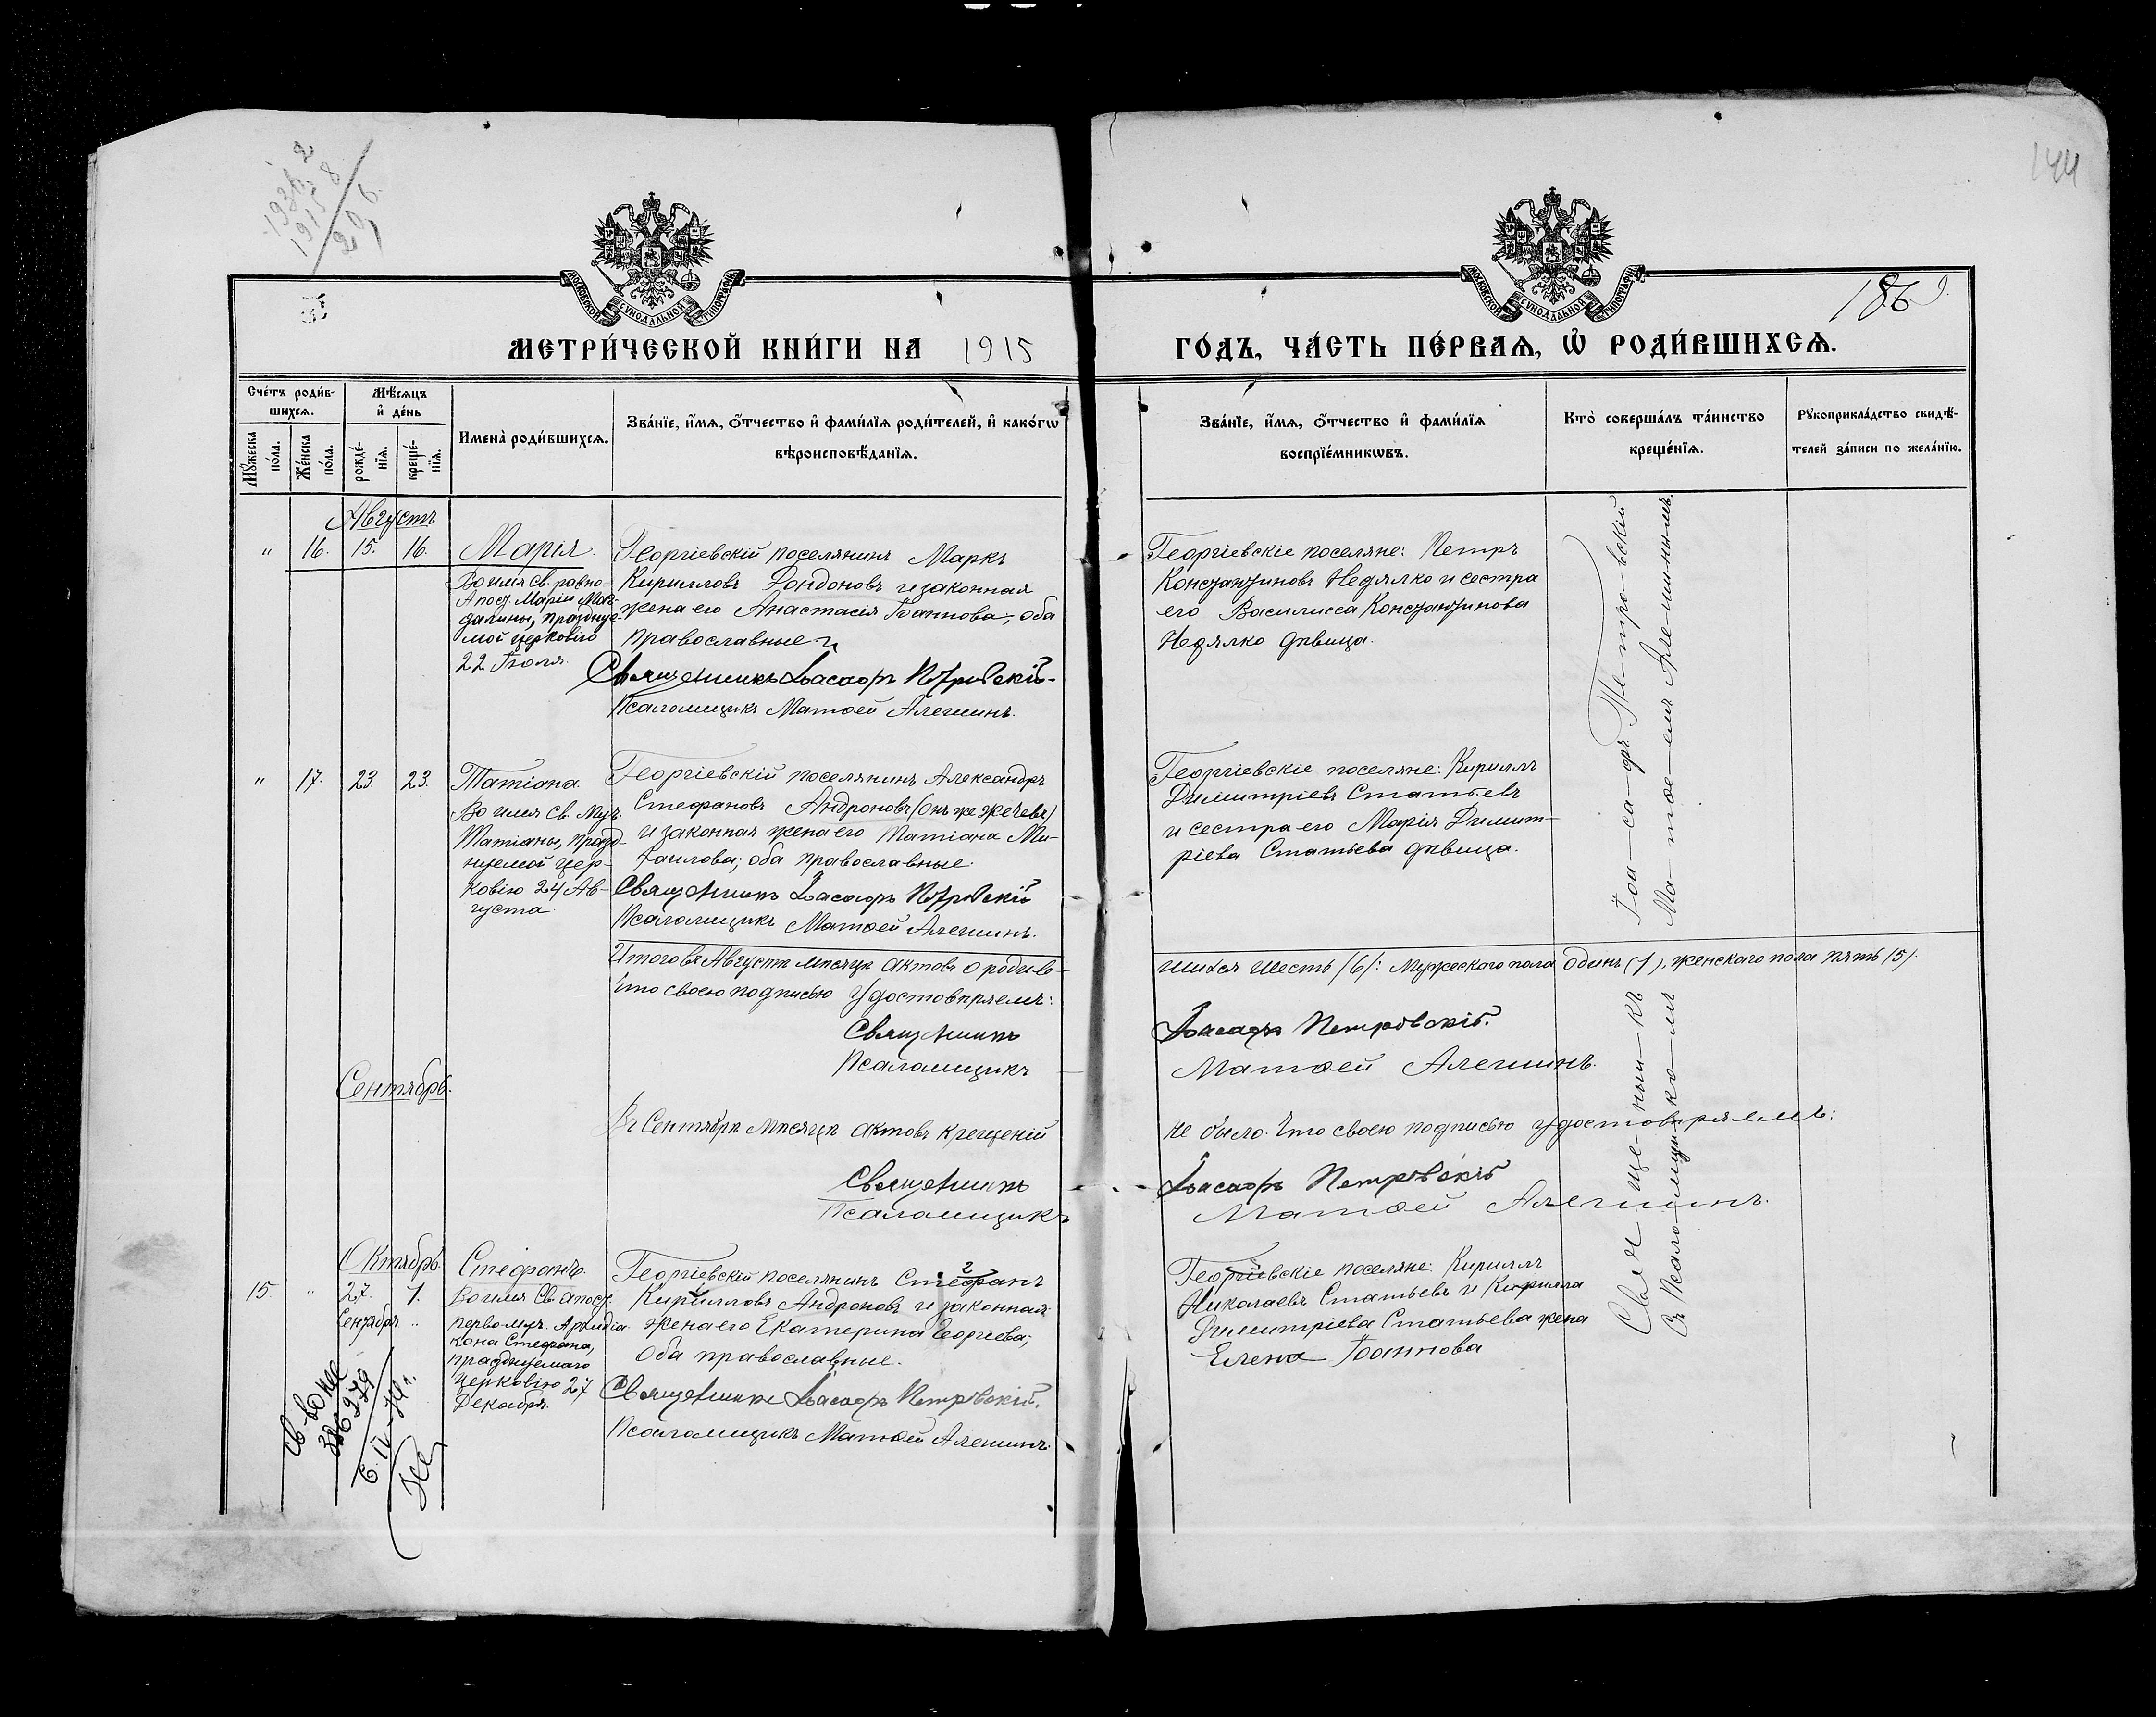 1936. 2
1915 8
20 6.
144
МОСКОВСКОЙ СѴНОДАЛЬНОЙ ТИПОГРАФІИ
МОСКОВСКОЙ СѴНОДАЛЬНОЙ ТИПОГРАФІИ
186
МЕТРИ́ЧЕСКОЙ КНИ́ГИ НА 1915
ГО́ДЪ, ЧА́СТЬ ПЕ́РВАѦ, Ѡ РОДИ́ВШИХСѦ.
Сче́тъ роди́в-
шихся.
Мѣ́сяцъ
и де́нь
Мꙋ́жеска
по́ла.
Же́нска
по́ла.
рожде́-
нїя.
креще́-
нїя.
Имена̀ роди́вшихся.
Зва́нїе, и́мя, ѻ́тчество и фами́лїя роди́телей, и како́гѡ
вѣроисповѣ́данїя.
Зва́нїе, и́мя, ѻ́тчество и фами́лїя
воспрїе́мникѡвъ.
Кто̀ соверша́лъ та́инство
креще́нїя.
Рꙋкоприкла́дство свидѣ́-
телей за́писи по жела́нїю.
Августъ
" 16. 15. 16. Марія.
Во имя Св. равно
Апост. Маріи Маг-
далины, празднуе-
мой церковію
22 Іюля.
Георгіевскій поселянинъ Маркъ
Кирилловъ Дондоновъ и законная
жена его Анастасія Іоаннова, оба
православные
Священникъ Іоасафъ Петровскій
Псаломщикъ Матѳей Алешинъ.
Георгіевскіе поселяне: Петръ
Константиновъ Недялко и сестра
его Василисса Константинова
Недялко дѣвица.
" 17. 23. 23. Татіана
Во имя Св. Муч.
Татіаны, празд-
нуемой цер-
ковію 24 Ав-
густа.
Георгіевскій поселянинъ Александръ
Стефановъ Андроновъ (онъ же Жечевъ)
и законная жена его Татіана Ми-
хаилова; оба православные.
Священникъ Іоасафъ Петровскій
Псаломщикъ Матѳей Алешинъ.
Георгіевскіе поселяне: Кириллъ
Димитріевъ Статьевъ
и сестра его Марія Димит-
ріева Статьева дѣвица.
Итого въ Августѣ мѣсяцѣ актовъ о родив-
шихся шесть (6): мужескаго пола одинъ (1), женскаго пола пять (5).
Что своею подписью удостовѣряемъ:
Священникъ Іоасафъ Петровскій.
Псаломщикъ Матѳей Алешинъ.
Сентябрь.
Въ Сентябрѣ мѣсяцѣ актовъ крещеній
не было. Что своею подписью удостовѣряемъ:
Священникъ Іоасафъ Петровскій
Псаломщикъ Матѳей Алешинъ.
Октябрь.
15. " 27. 1. Стефанъ.
Сентября "
Во имя Св. апост.
первомуч. Архидіа
кона Стефана,
празднуемаго
церковію 27
Декабря.
Георгіевскій поселянинъ Стефанъ
Кирилловъ Андроновъ и законная
жена его Екатерина Георгіева;
оба православные.
Священникъ Іоасафъ Петровскій.
Псаломщикъ Матѳей Алешинъ.
Георгіевскіе поселяне: Кириллъ
Николаевъ Статьевъ и Кирилла
Димитріева Статьева жена
Елена Іоаннова
Свя-ще-нни-къ Іоа-са-фъ Петро-вскій
Съ Псало-мщи-ко-мъ Ма-тѳе-емъ Але-шинымъ.